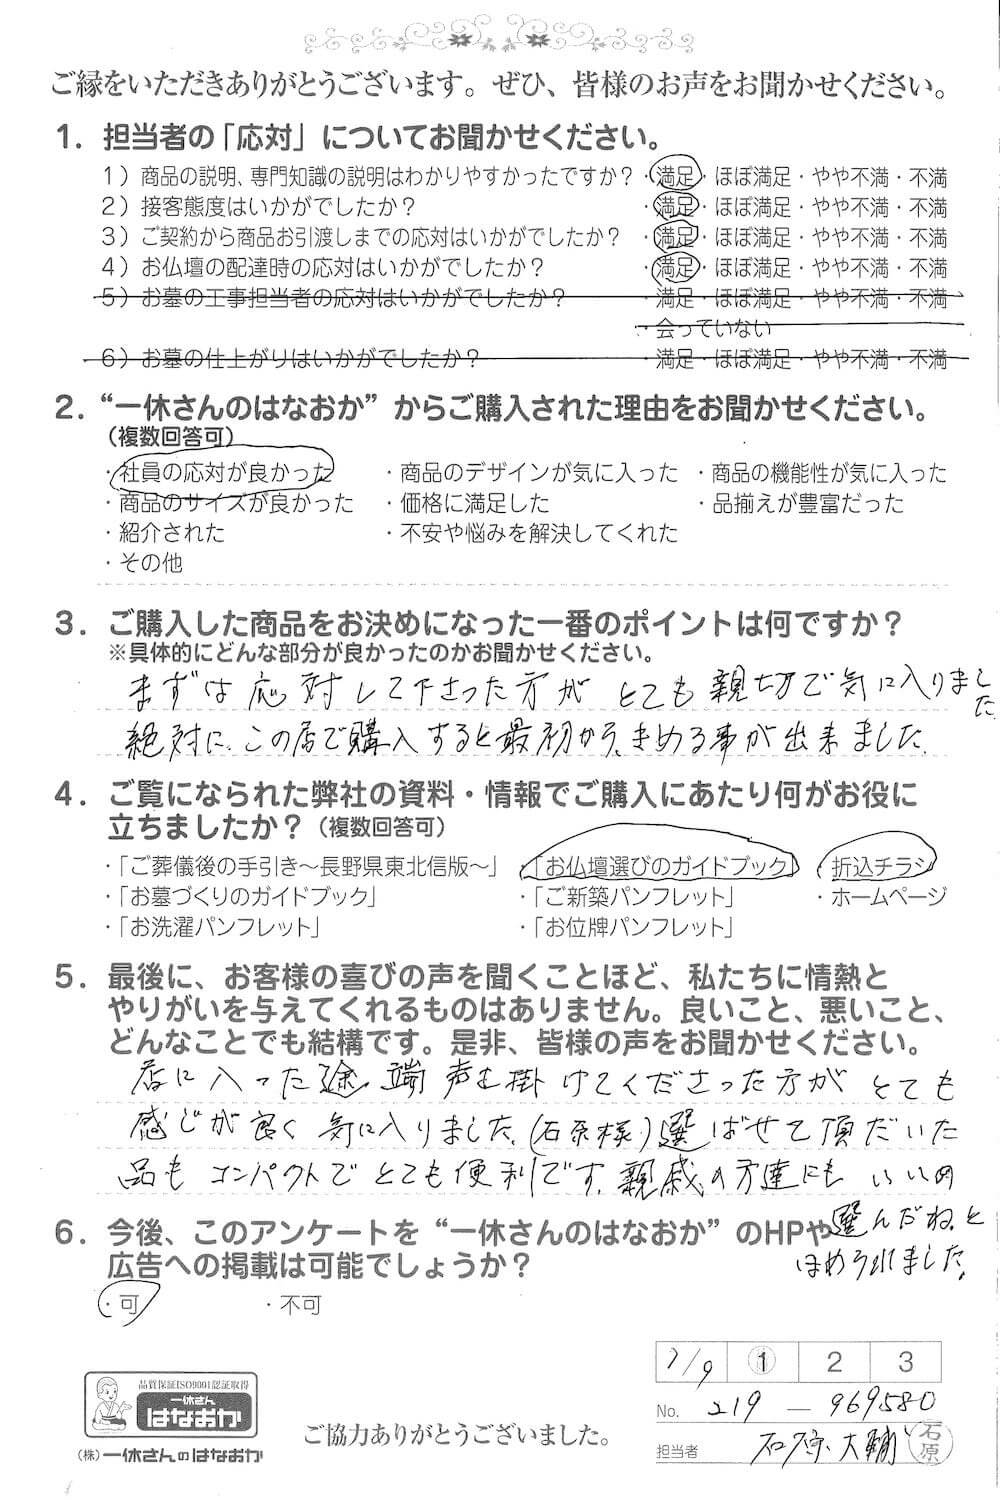 ご縁をいただきありがとうございます。ぜひ、皆様のお声をお聞かせください。
1. 担当者の「応対」についてお聞かせください。
1）商品の説明、専門知識の説明はわかりやすかったですか？・満足・ほぼ満足・やや不満・不満
2）接客態度はいかがでしたか？ ・満足・ほぼ満足・やや不満・不満
3）ご契約から商品お引渡しまでの応対はいかがでしたか？ ・満足・ほぼ満足・やや不満・不満
4）お仏壇の配達時の応対はいかがでしたか？ ・満足・ほぼ満足・やや不満・不満
5）お墓の工事担当者の応対はいかがでしたか？ ・満足・ほぼ満足・やや不満・不満
・会っていない
6）お墓の仕上がりはいかがでしたか？ ・満足・ほぼ満足・やや不満・不満
2. “一休さんのはなおか”からご購入された理由をお聞かせください。
（複数回答可）
・社員の応対が良かった ・商品のデザインが気に入った ・商品の機能性が気に入った
・商品のサイズが良かった ・価格に満足した ・品揃えが豊富だった
・紹介された ・不安や悩みを解決してくれた
・その他
3. ご購入した商品をお決めになった一番のポイントは何ですか？
※具体的にどんな部分が良かったのかお聞かせください。
まずは応対して下さった方がとても親切で気に入りました
絶対に、この店で購入すると最初から、きめる事が出来ました。
4. ご覧になられた弊社の資料・情報でご購入にあたり何がお役に
立ちましたか？（複数回答可）
・「ご葬儀後の手引き～長野県東北信版～」 ・「お仏壇選びのガイドブック」 ・折込チラシ
・「お墓づくりのガイドブック」 ・「ご新築パンフレット」 ・ホームページ
・「お洗濯パンフレット」 ・「お位牌パンフレット」
5. 最後に、お客様の喜びの声を聞くことほど、私たちに情熱と
やりがいを与えてくれるものはありません。良いこと、悪いこと、
どんなことでも結構です。是非、皆様の声をお聞かせください。
店に入った途端声を掛けてくださった方がとても
感じが良く気に入りました。（石原様）選ばせて頂だいた
品もコンパクトでとても便利です。親戚の方達にもいいの
選んだねと
ほめられました。
6. 今後、このアンケートを“一休さんのはなおか”のHPや
広告への掲載は可能でしょうか？
・可 ・不可
7/9 1 2 3
No. 219 — 969580
担当者 石原大輔 石原
品質保証ISO9001認証取得
一休さん
はなおか
（株）一休さんのはなおか
ご協力ありがとうございました。